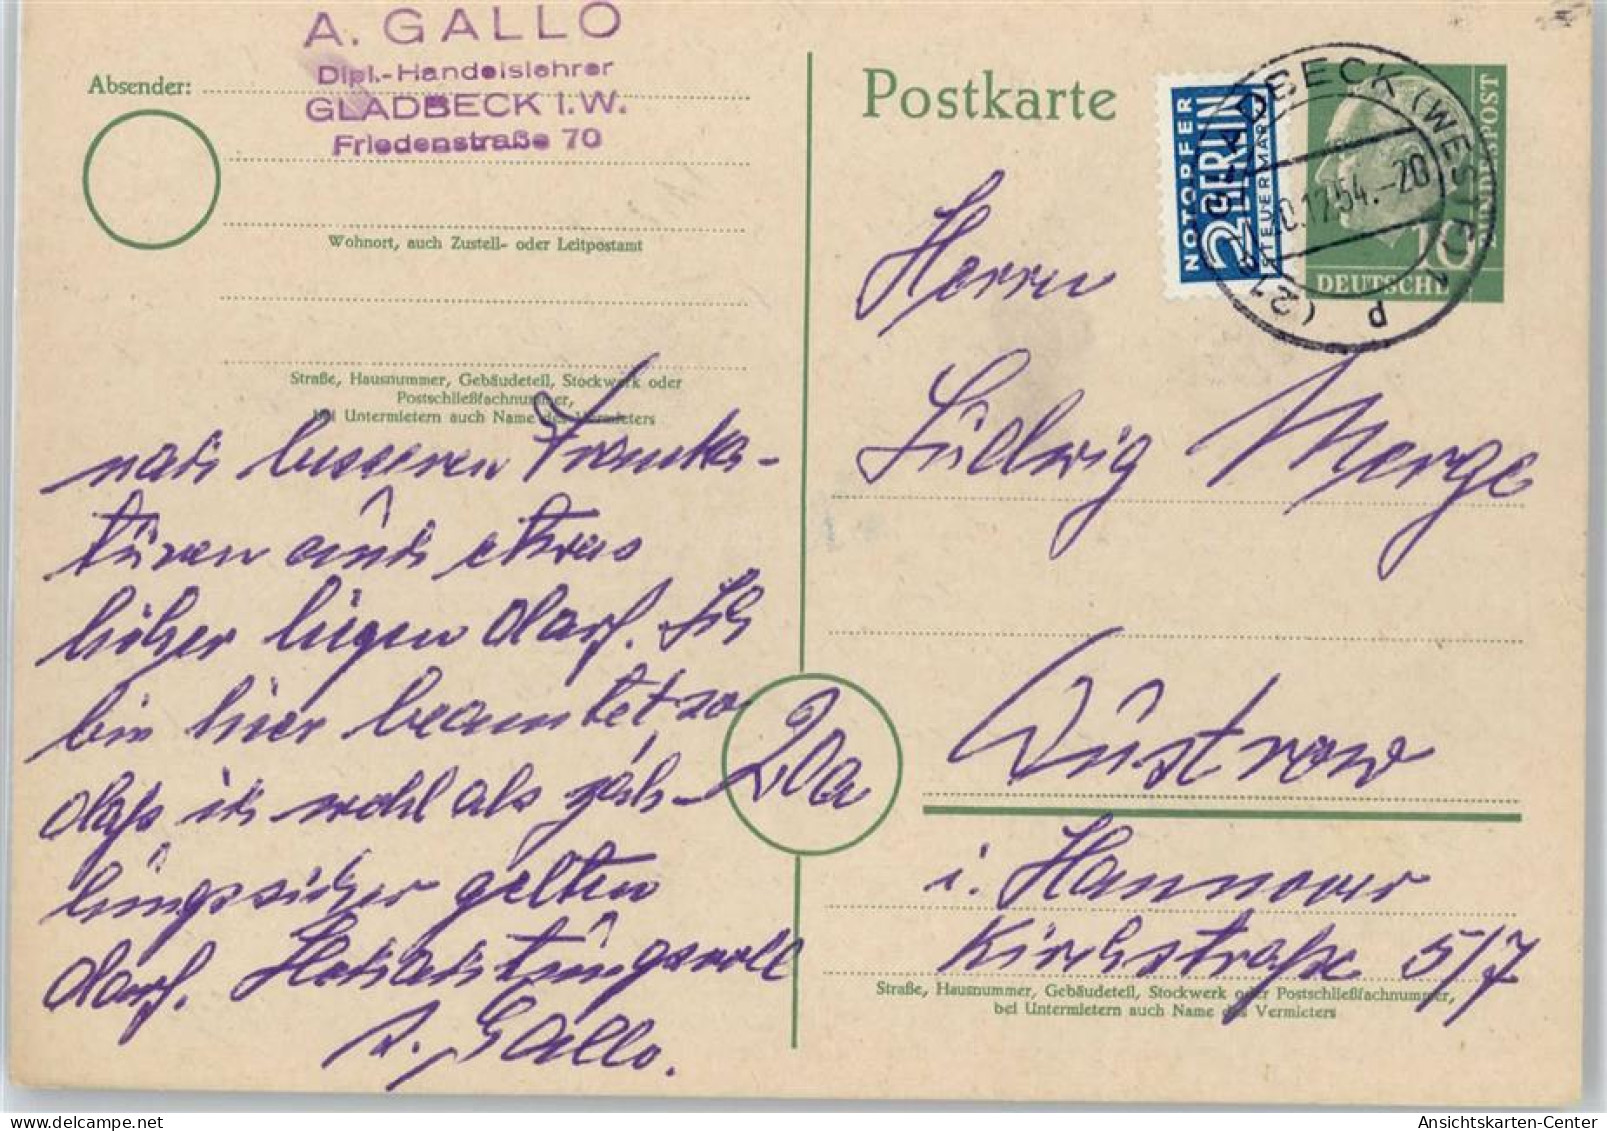 A. GALLO
Dipl.-Handelslehrer
GLADBECK I.W.
Friedenstraße 70
Absender:
Wohnort, auch Zustell- oder Leitpostamt
Straße, Hausnummer, Gebäudeteil, Stockwerk oder
Postschließfachnummer,
bei Untermietern auch Name des Vermieters
nach besseren Franka-
turen auch etwas
höher liegen darf. Ich
bin hier beamtet, so
daß ich wohl als zah-
lungssicher gelten
darf. Hochachtungsvoll
A. Gallo.
Postkarte
NOTOPFER
2 BERLIN
STEUERMARKE
GLADBECK (WESTF) 2
10.12.54.-20
(21a) P
DEUTSCHE
BUNDESPOST
10
Herrn
Ludwig Merge
20a
Wustrow
i. Hannover
Kirchstraße 5/7
Straße, Hausnummer, Gebäudeteil, Stockwerk oder Postschließfachnummer,
bei Untermietern auch Name des Vermieters
Ansichtskarten-Center